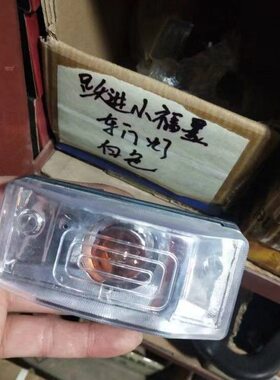 跃进小福星
车门灯
白色